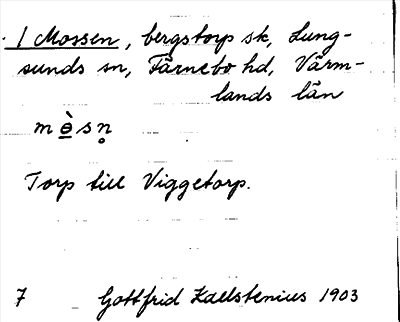 1 Mossen, bergstorp sk, Lung-
sunds sn, Färnebo hd, Värm-
lands län
mọ̀sn̥
Torp till Viggetorp.
7 Gottfrid Kallstenius 1903